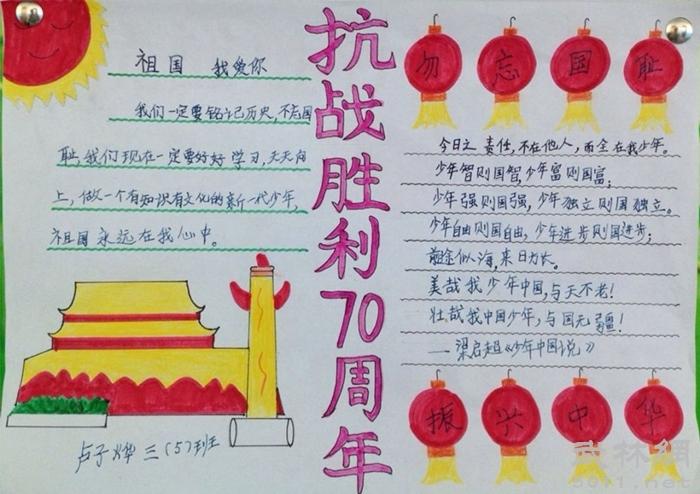 祖国 我爱你
我们一定要铭记历史,不忘国
耻,我们现在一定要好好学习,天天向
上,做一个有知识有文化的新一代少年,
祖国永远在我心中。
卢子烨 三(5)班
抗战胜利70周年
勿忘国耻
今日之责任,不在他人,而全在我少年。
少年智则国智,少年富则国富;
少年强则国强,少年独立则国独立。
少年自由则国自由,少年进步则国进步;
前途似海,来日方长。
美哉我少年中国,与天不老!
壮哉我中国少年,与国无疆!
——梁启超《少年中国说》
振兴中华
武林网
5011.net